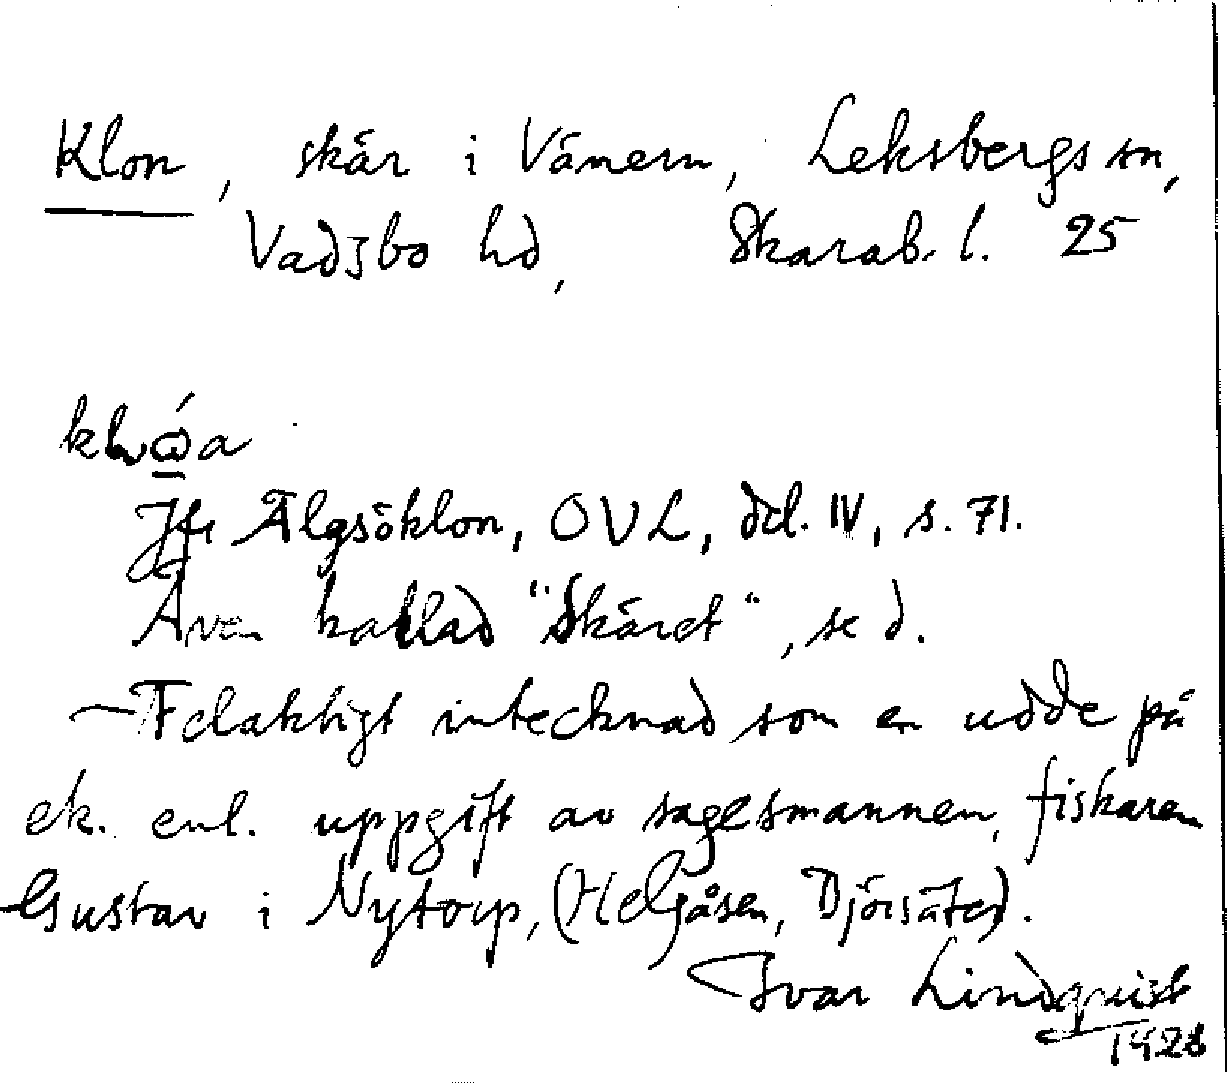 Klon, skär i Vänern, Leksbergs sn,
Vadsbo hd, Skarab. l. 25
Jfr Älgsöklon, OVL, del. IV, s. 71.
Även kallad "Skäret", se d.
— Felaktigt intecknad som en udde på
ek. enl. uppgift av sagesmannen, fiskaren
Gustav i Nytorp, (Helgåsen, Björsäter).
Ivar Lindquist
1928